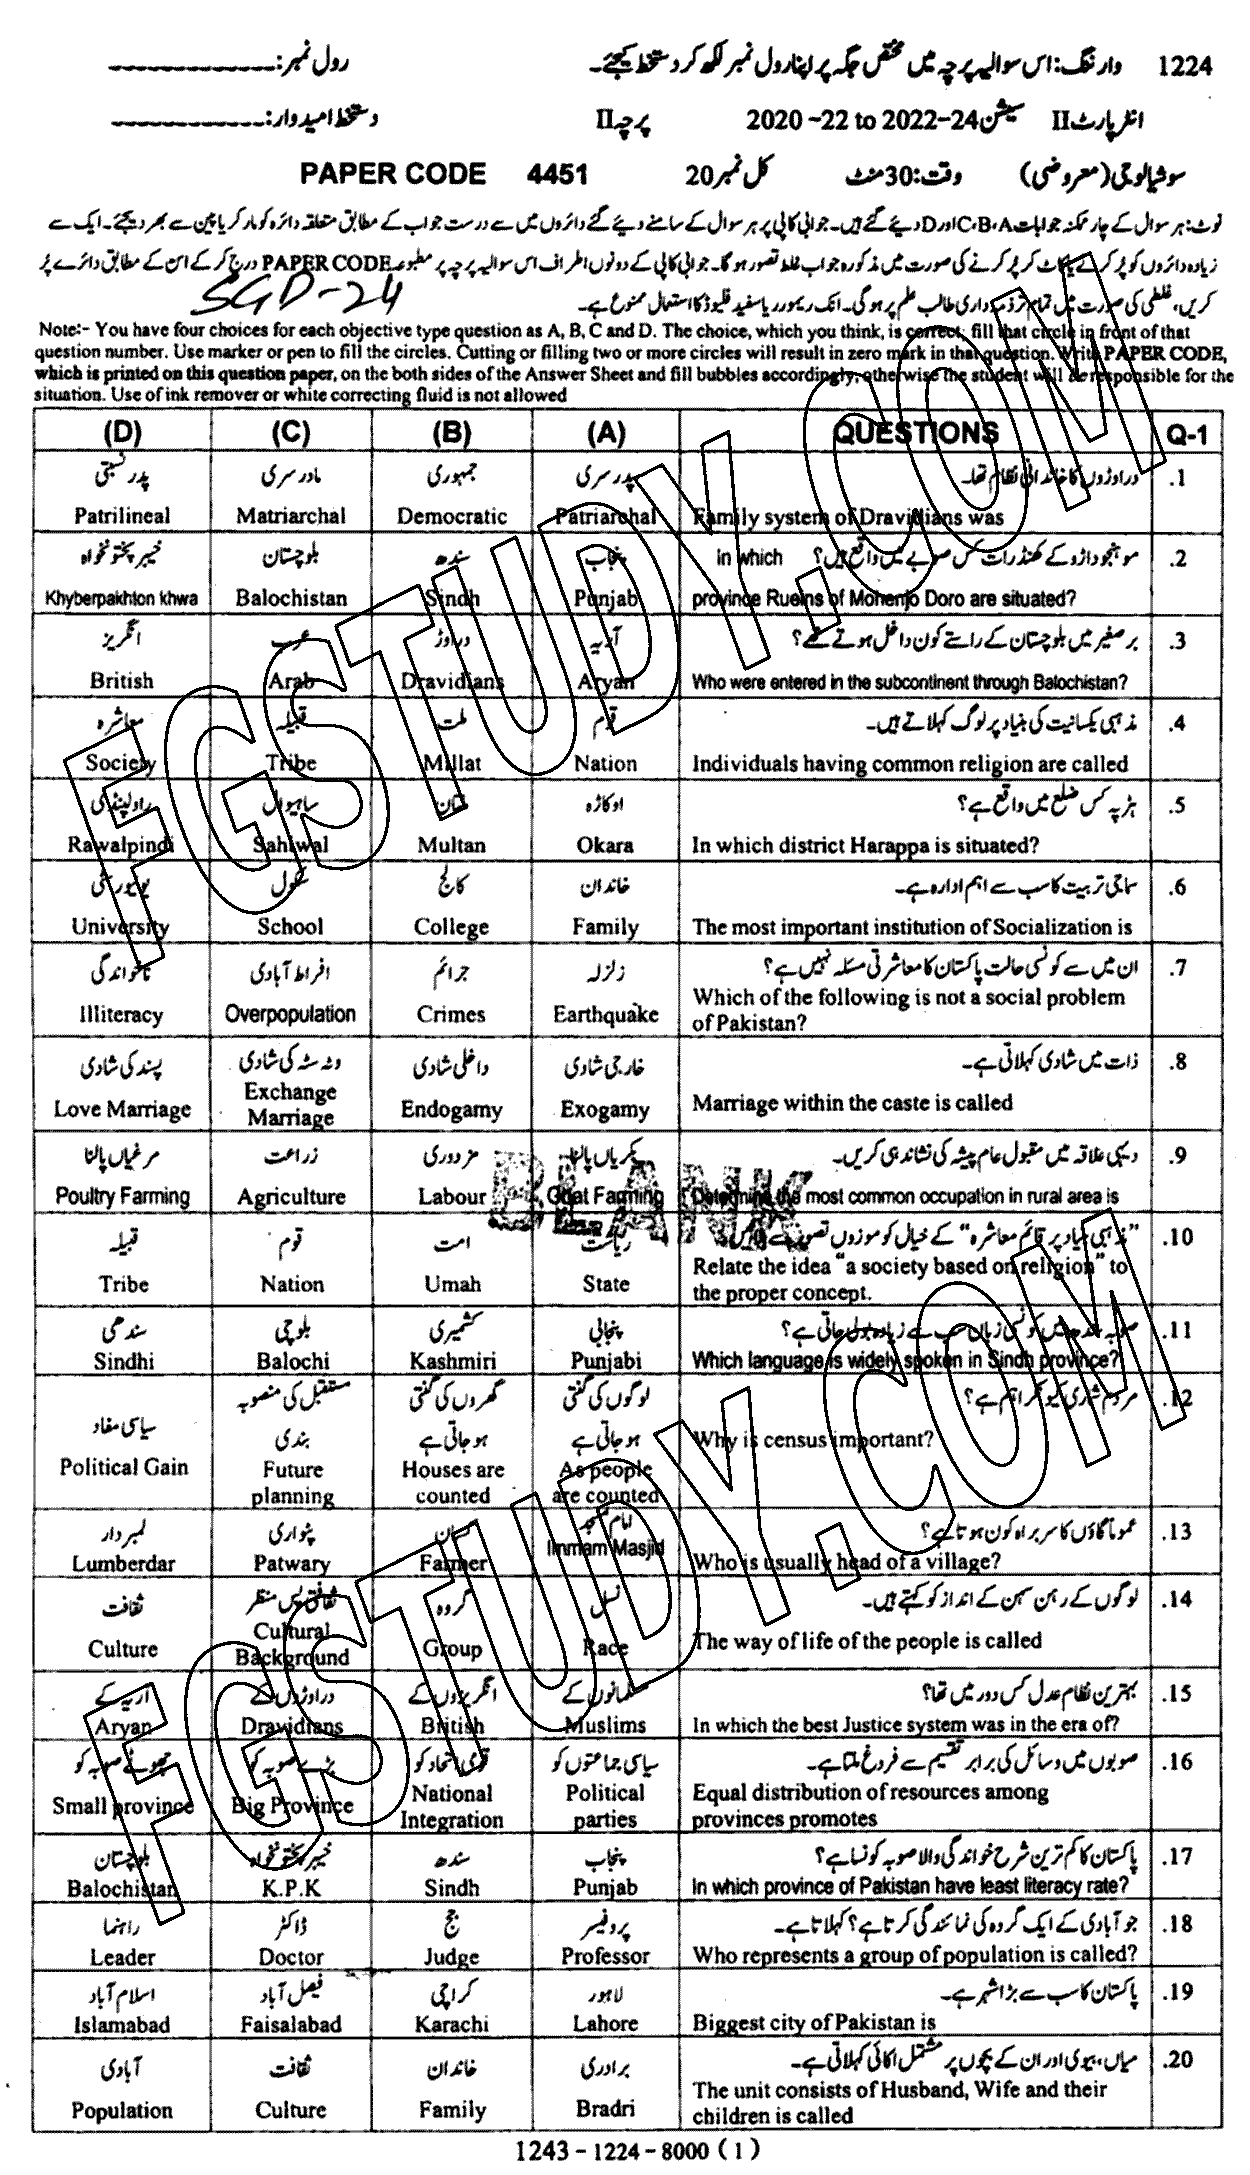 1224 وارننگ: اس سوالیہ پرچہ میں مختص جگہ پر اپنا رول نمبر لکھ کر دستخط کیجئے۔ رول نمبر:_____________
انٹر پارٹ II سیشن 2020 -22 to 2022-24 پرچہ II دستخط امیدوار:_____________
سوشیالوجی (معروضی) وقت: 30 منٹ کل نمبر 20 PAPER CODE 4451
نوٹ: ہر سوال کے چار ممکنہ جوابات C،B،A اور D دیئے گئے ہیں۔ جوابی کاپی پر ہر سوال کے سامنے دیئے گئے دائروں میں سے درست جواب کے مطابق متعلقہ دائرہ کو مارکر یا پین سے بھر دیجئے۔ ایک سے
زیادہ دائروں کو پُر کرنے یا کاٹ کر پُر کرنے کی صورت میں مذکورہ جواب غلط تصور ہوگا۔ جوابی کاپی کے دونوں اطراف اس سوالیہ پرچہ پر مطبوعہ PAPER CODE درج کر کے اس کے مطابق دائرے پُر
کریں، غلطی کی صورت میں تمام تر ذمہ داری طالب علم پر ہوگی۔ انک ریموور یا سفید فلیوڈ کا استعمال ممنوع ہے۔
SGD-24
Note:- You have four choices for each objective type question as A, B, C and D. The choice, which you think, is correct; fill that circle in front of that
question number. Use marker or pen to fill the circles. Cutting or filling two or more circles will result in zero mark in that question. Write PAPER CODE,
which is printed on this question paper, on the both sides of the Answer Sheet and fill bubbles accordingly, otherwise the student will be responsible for the
situation. Use of ink remover or white correcting fluid is not allowed
(D) (C) (B) (A) QUESTIONS Q-1
پدر نسبتی مادر سری جمہوری پدر سری دراوڑوں کا خاندانی نظام تھا۔ .1
Patrilineal Matriarchal Democratic Patriarchal Family system of Dravidians was
خیبر پختونخواہ بلوچستان سندھ پنجاب موہنجوداڑو کے کھنڈرات کس صوبے میں واقع ہیں؟ In which .2
Khyberpakhton khwa Balochistan Sindh Punjab province Rueins of Mohenjo Doro are situated?
انگریز عرب دراوڑ آریہ برصغیر میں بلوچستان کے راستے کون داخل ہوئے تھے؟ .3
British Arab Dravidians Aryan Who were entered in the subcontinent through Balochistan?
معاشرہ قبیلہ ملت قوم مذہبی یکسانیت کی بنیاد پر لوگ کہلاتے ہیں۔ .4
Society Tribe Millat Nation Individuals having common religion are called
راولپنڈی ساہیوال ملتان اوکاڑہ ہڑپہ کس ضلع میں واقع ہے؟ .5
Rawalpindi Sahiwal Multan Okara In which district Harappa is situated?
یونیورسٹی سکول کالج خاندان سماجی تربیت کا سب سے اہم ادارہ ہے۔ .6
University School College Family The most important institution of Socialization is
ناخواندگی افراط آبادی جرائم زلزلہ ان میں سے کونسی حالت پاکستان کا معاشرتی مسئلہ نہیں ہے؟ .7
Illiteracy Overpopulation Crimes Earthquake Which of the following is not a social problem
of Pakistan?
پسند کی شادی وٹہ سٹہ کی شادی داخلی شادی خارجی شادی ذات میں شادی کہلاتی ہے۔ .8
Love Marriage Exchange Marriage Endogamy Exogamy Marriage within the caste is called
مرغیاں پالنا زراعت مزدوری بکریاں پالنا دیہی علاقہ میں مقبول عام پیشہ کی نشاندہی کریں۔ .9
Poultry Farming Agriculture Labour Goat Farming Determine the most common occupation in rural area is
BLANK
قبیلہ قوم امت ریاست "مذہبی بنیاد پر قائم معاشرہ" کے خیال کو موزوں تصور سے ملائیں۔ .10
Tribe Nation Umah State Relate the idea "a society based on religion" to
the proper concept.
سندھی بلوچی کشمیری پنجابی صوبہ سندھ میں کونسی زبان سب سے زیادہ بولی جاتی ہے؟ .11
Sindhi Balochi Kashmiri Punjabi Which language is widely spoken in Sindh province?
سیاسی مفاد مستقبل کی منصوبہ بندی گھروں کی گنتی ہو جاتی ہے لوگوں کی گنتی ہو جاتی ہے مردم شماری کیونکر اہم ہے؟ .12
Political Gain Future planning Houses are counted As people are counted Why is census important?
لمبردار پٹواری کسان امام مسجد عموماً گاؤں کا سربراہ کون ہوتا ہے؟ .13
Lumberdar Patwary Farmer Immam Masjid Who is usually head of a village?
ثقافت ثقافتی پس منظر گروہ نسل لوگوں کے رہن سہن کے انداز کو کہتے ہیں۔ .14
Culture Cultural Background Group Race The way of life of the people is called
آریہ کے دراوڑوں کے انگریزوں کے مسلمانوں کے بہترین نظام عدل کس دور میں تھا؟ .15
Aryan Dravidians British Muslims In which the best Justice system was in the era of?
چھوٹے صوبہ کو بڑے صوبہ کو قومی اتحاد کو سیاسی جماعتوں کو صوبوں میں وسائل کی برابر تقسیم سے فروغ ملتا ہے۔ .16
Small province Big Province National Integration Political parties Equal distribution of resources among
provinces promotes
بلوچستان خیبر پختونخواہ سندھ پنجاب پاکستان کا کم ترین شرح خواندگی والا صوبہ کونسا ہے؟ .17
Balochistan K.P.K Sindh Punjab In which province of Pakistan have least literacy rate?
راہنما ڈاکٹر جج پروفیسر جو آبادی کے ایک گروہ کی نمائندگی کرتا ہے؟ کہلاتا ہے۔ .18
Leader Doctor Judge Professor Who represents a group of population is called?
اسلام آباد فیصل آباد کراچی لاہور پاکستان کا سب سے بڑا شہر ہے۔ .19
Islamabad Faisalabad Karachi Lahore Biggest city of Pakistan is
آبادی ثقافت خاندان برادری میاں، بیوی اور ان کے بچوں پر مشتمل اکائی کہلاتی ہے۔ .20
Population Culture Family Bradri The unit consists of Husband, Wife and their
children is called
1243 - 1224 - 8000 ( 1 )
FGSTUDY.COM
FGSTUDY.COM